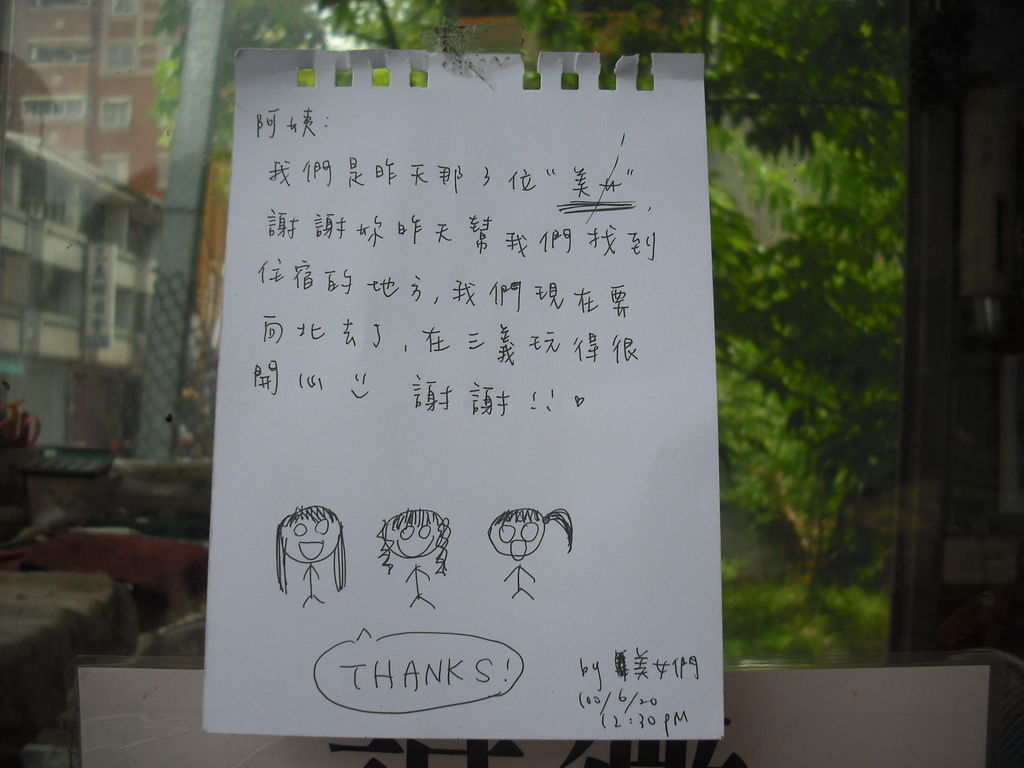 阿姨:
我們是昨天那3位"美女",
謝謝妳昨天幫我們找到
住宿的地方,我們現在要
向北去了,在三義玩得很
開心 謝謝!!♥
THANKS!
by 美女們
100/6/20
12:30PM